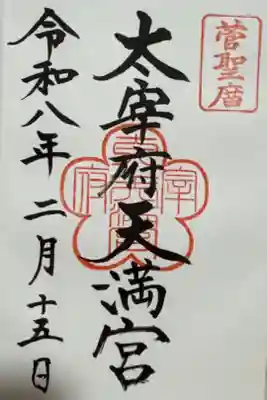 菅聖暦
太宰府天満宮
令和八年二月十五日